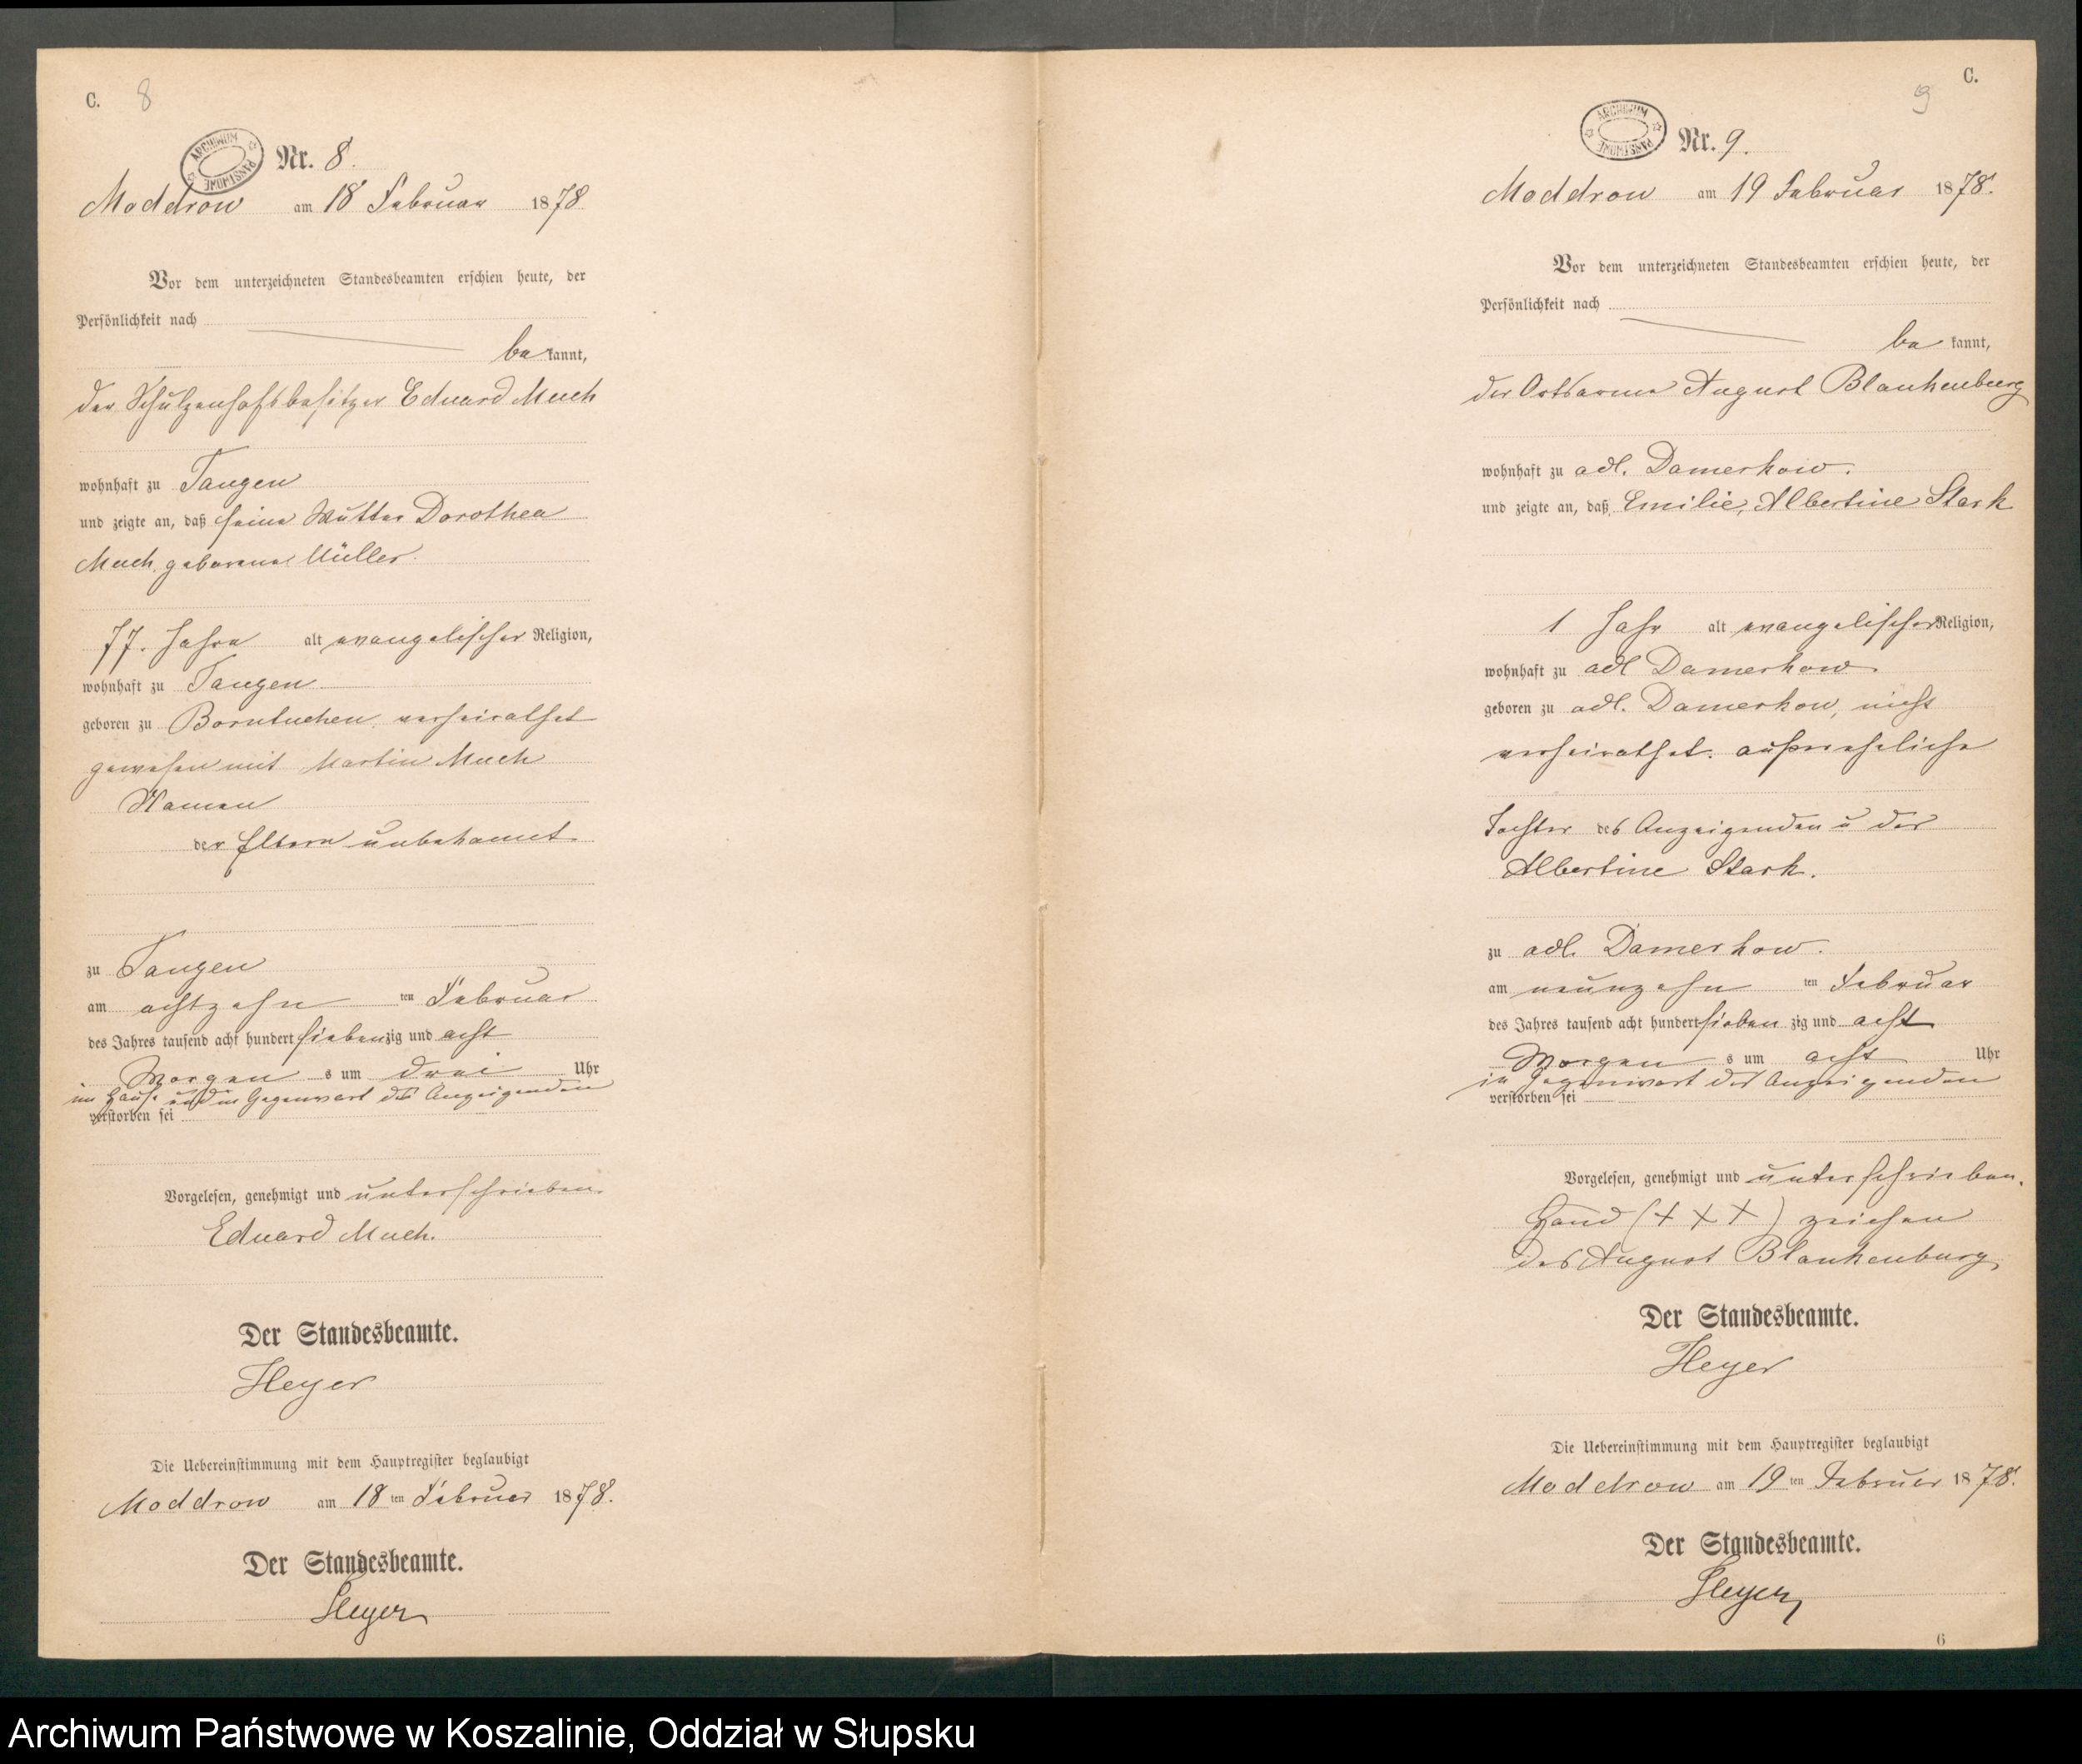 C. 8
ARCHIWUM PAŃSTWOWE
Nr. 8.
Moddrow am 18 Februar 1878
Vor dem unterzeichneten Standesbeamten erschien heute, der
Persönlichkeit nach
bekannt,
der Schulzenhofsbesitzer Eduard Much
wohnhaft zu Tangen
und zeigte an, daß seine Mutter Dorothea
Much, geborene Müller.
77. Jahre alt evangelischer Religion,
wohnhaft zu Tangen
geboren zu Borntuchen, verheirathet
gewesen mit Martin Much
Namen
der Eltern unbekannt.
zu Tangen
am achtzehn ten Februar
des Jahres tausend acht hundert siebenzig und acht
Morgens um drei Uhr
im Hause und in Gegenwart des Anzeigenden
verstorben sei
Vorgelesen, genehmigt und unterschrieben.
Eduard Much.
Der Standesbeamte.
Heyer
Die Uebereinstimmung mit dem Hauptregister beglaubigt
Moddrow am 18 ten Februar 1878.
Der Standesbeamte.
Heyer
C.
9
ARCHIWUM PAŃSTWOWE
Nr. 9.
Moddrow am 19 Februar 1878.
Vor dem unterzeichneten Standesbeamten erschien heute, der
Persönlichkeit nach
bekannt,
der Ortsarme August Blankenburg
wohnhaft zu adl. Damerkow.
und zeigte an, daß Emilie, Albertine Stark
1 Jahr alt evangelischer Religion,
wohnhaft zu adl Damerkow.
geboren zu adl. Damerkow, nicht
verheirathet. außereheliche
Tochter des Anzeigenden u der
Albertine Stark.
zu adl. Damerkow.
am neunzehn ten Februar
des Jahres tausend acht hundert sieben zig und acht
Morgens um acht Uhr
in Gegenwart des Anzeigenden
verstorben sei
Vorgelesen, genehmigt und unterschrieben.
Hand (+ + +) zeichen
des August Blankenburg
Der Standesbeamte.
Heyer
Die Uebereinstimmung mit dem Hauptregister beglaubigt
Moddrow am 19 ten Februar 1878.
Der Standesbeamte.
Heyer
6
Archiwum Państwowe w Koszalinie, Oddział w Słupsku